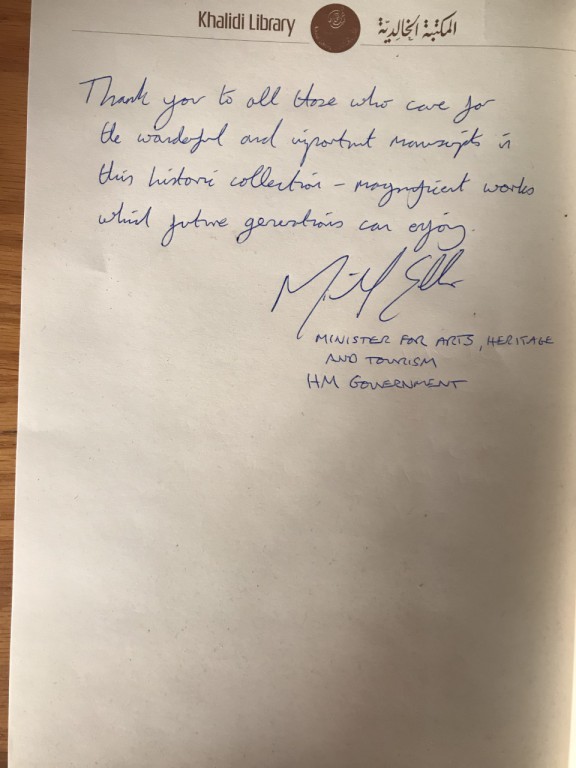 Khalidi Library المكتبة الخالديّة
Thank you to all those who care for
the wonderful and important manuscripts in
this historic collection – magnificent works
which future generations can enjoy.
MINISTER FOR ARTS, HERITAGE
AND TOURISM
HM GOVERNMENT